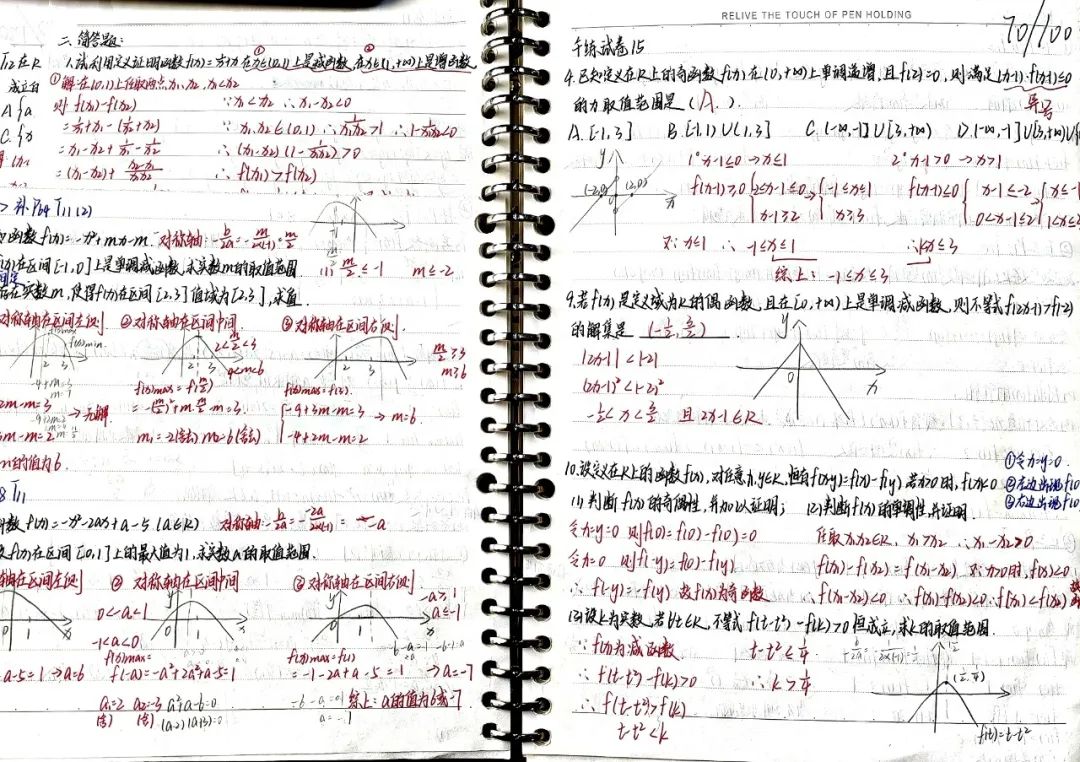 二、简答题:
1.试利用定义证明函数f(x)=1/x+x在x∈(0,1)上是减函数,在x∈(1,+∞)上是增函数.
①解:在(0,1)上任取两点x₁,x₂,x₁<x₂
则 f(x₁)-f(x₂)
=1/x₁+x₁-(1/x₂+x₂)
=x₁-x₂+1/x₁-1/x₂
=(x₁-x₂)+(x₂-x₁)/x₁x₂
∵x₁<x₂ ∴x₁-x₂<0
∵x₁,x₂∈(0,1) ∴1/x₁x₂>1 ∴1-1/x₁x₂<0
∴(x₁-x₂)(1-1/x₁x₂)>0
∴f(x₁)>f(x₂)
补P64 T11(2)
函数f(x)=-x²+mx-m. 对称轴-b/2a=-m/2×(-1)=m/2
f(x)在区间[-1,0]上是单调减函数,求实数m的取值范围 (1) m/2≤-1 m≤-2
存在实数m,使得f(x)在区间[2,3]值域为[2,3],求值
对称轴在区间左侧 ②对称轴在区间中间. ③对称轴在区间右侧.
2<m/2<3
m/2≥3
4<m<6
m≥6
f(x)max=f(m/2)
f(x)max=f(2).
2m-m=3 →无解
=-(m/2)²+m·m/2-m=3
-9+3m-m=3 →m=6
3m-m=2
m₁=-2(舍) m₂=6(舍)
-4+2m-m=2
m的值为6.
函数f(x)=-x²-2ax+a-5 (a∈R) 对称轴-b/2a=-2a/2×(-1)=-a
f(x)在区间[0,1]上的最大值为1,求实数a的取值范围.
轴在区间左侧 ② 对称轴在区间中间 ③ 对称轴在区间右侧.
0<-a<1
-a≥1
a≤-1
-1<a<0
f(x)max=
f(x)max=f(1)
a-5=1→a=6
f(-a)=-a²+2a²+a-5=1
=-1-2a+a-5=1 →a=-7
a₁=2 a₂=-3 a²+a-6=0
(舍) (舍) (a-2)(a+3)=0
综上:a的值为6或-7
RELIVE THE TOUCH OF PEN HOLDING
70/100
午练试卷15
4.已知定义在R上的奇函数f(x)在(0,+∞)上单调递增,且f(2)=0,则满足(x-1)·f(x-1)≤0
的x取值范围是(A.).
异号
A.[-1,3] B.[-1,1)∪(1,3] C.(-∞,-1]∪[3,+∞) D.(-∞,-1]∪[3,+∞)∪{
y
(-2,0) (2,0)
x
1°x-1≤0→x≤1
2°x-1>0→x>1
f(x-1)≥0 -2≤x-1≤0→ -1≤x≤1
x-1≥2 x≥3
f(x-1)≤0 x-1≤-2 x≤-1
0<x-1≤2 1<x≤3
又∵x≤1 ∴-1≤x≤1
∴1<x≤3
综上 -1≤x≤3
9.若f(x)是定义域为R的偶函数,且在[0,+∞)上是单调减函数,则不等式f(2x-1)>f(-2)
的解集是 (-1/2,3/2)
|2x-1|<|-2|
(2x-1)²<(-2)²
-1/2<x<3/2 且2x-1∈R.
①令x=y=0.
10.设定义在R上的函数f(x),对任意x,y∈R,恒有f(x-y)=f(x)-f(y),若x>0时,f(x)<0
②左边出现f(0)
(1)判断f(x)的奇偶性,并加以证明; (2)判断f(x)的单调性,并证明.
③右边出现f(0)
令x=y=0 则f(0)=f(0)-f(0)=0
任取x₁,x₂∈R,x₁>x₂ ∴x₁-x₂>0
令x=0 则f(-y)=f(0)-f(y)
f(x₁)-f(x₂)=f(x₁-x₂) 又∵x>0时,f(x)<0
∴f(-y)=-f(y) 故f(x)为奇函数
∴f(x₁-x₂)<0 ∴f(x₁)-f(x₂)<0 ∴f(x₁)<f(x₂)
(3)设k为实数,若∀t∈R,不等式f(t-t²)-f(k)>0恒成立,求k的取值范围.
∵f(x)为减函数.
t-t²≤1/4
∴f(t-t²)-f(k)>0
∴k>1/4
∴f(t-t²)>f(k)
t-t²<k
(1/2,1/4)
f(t)=t-t²